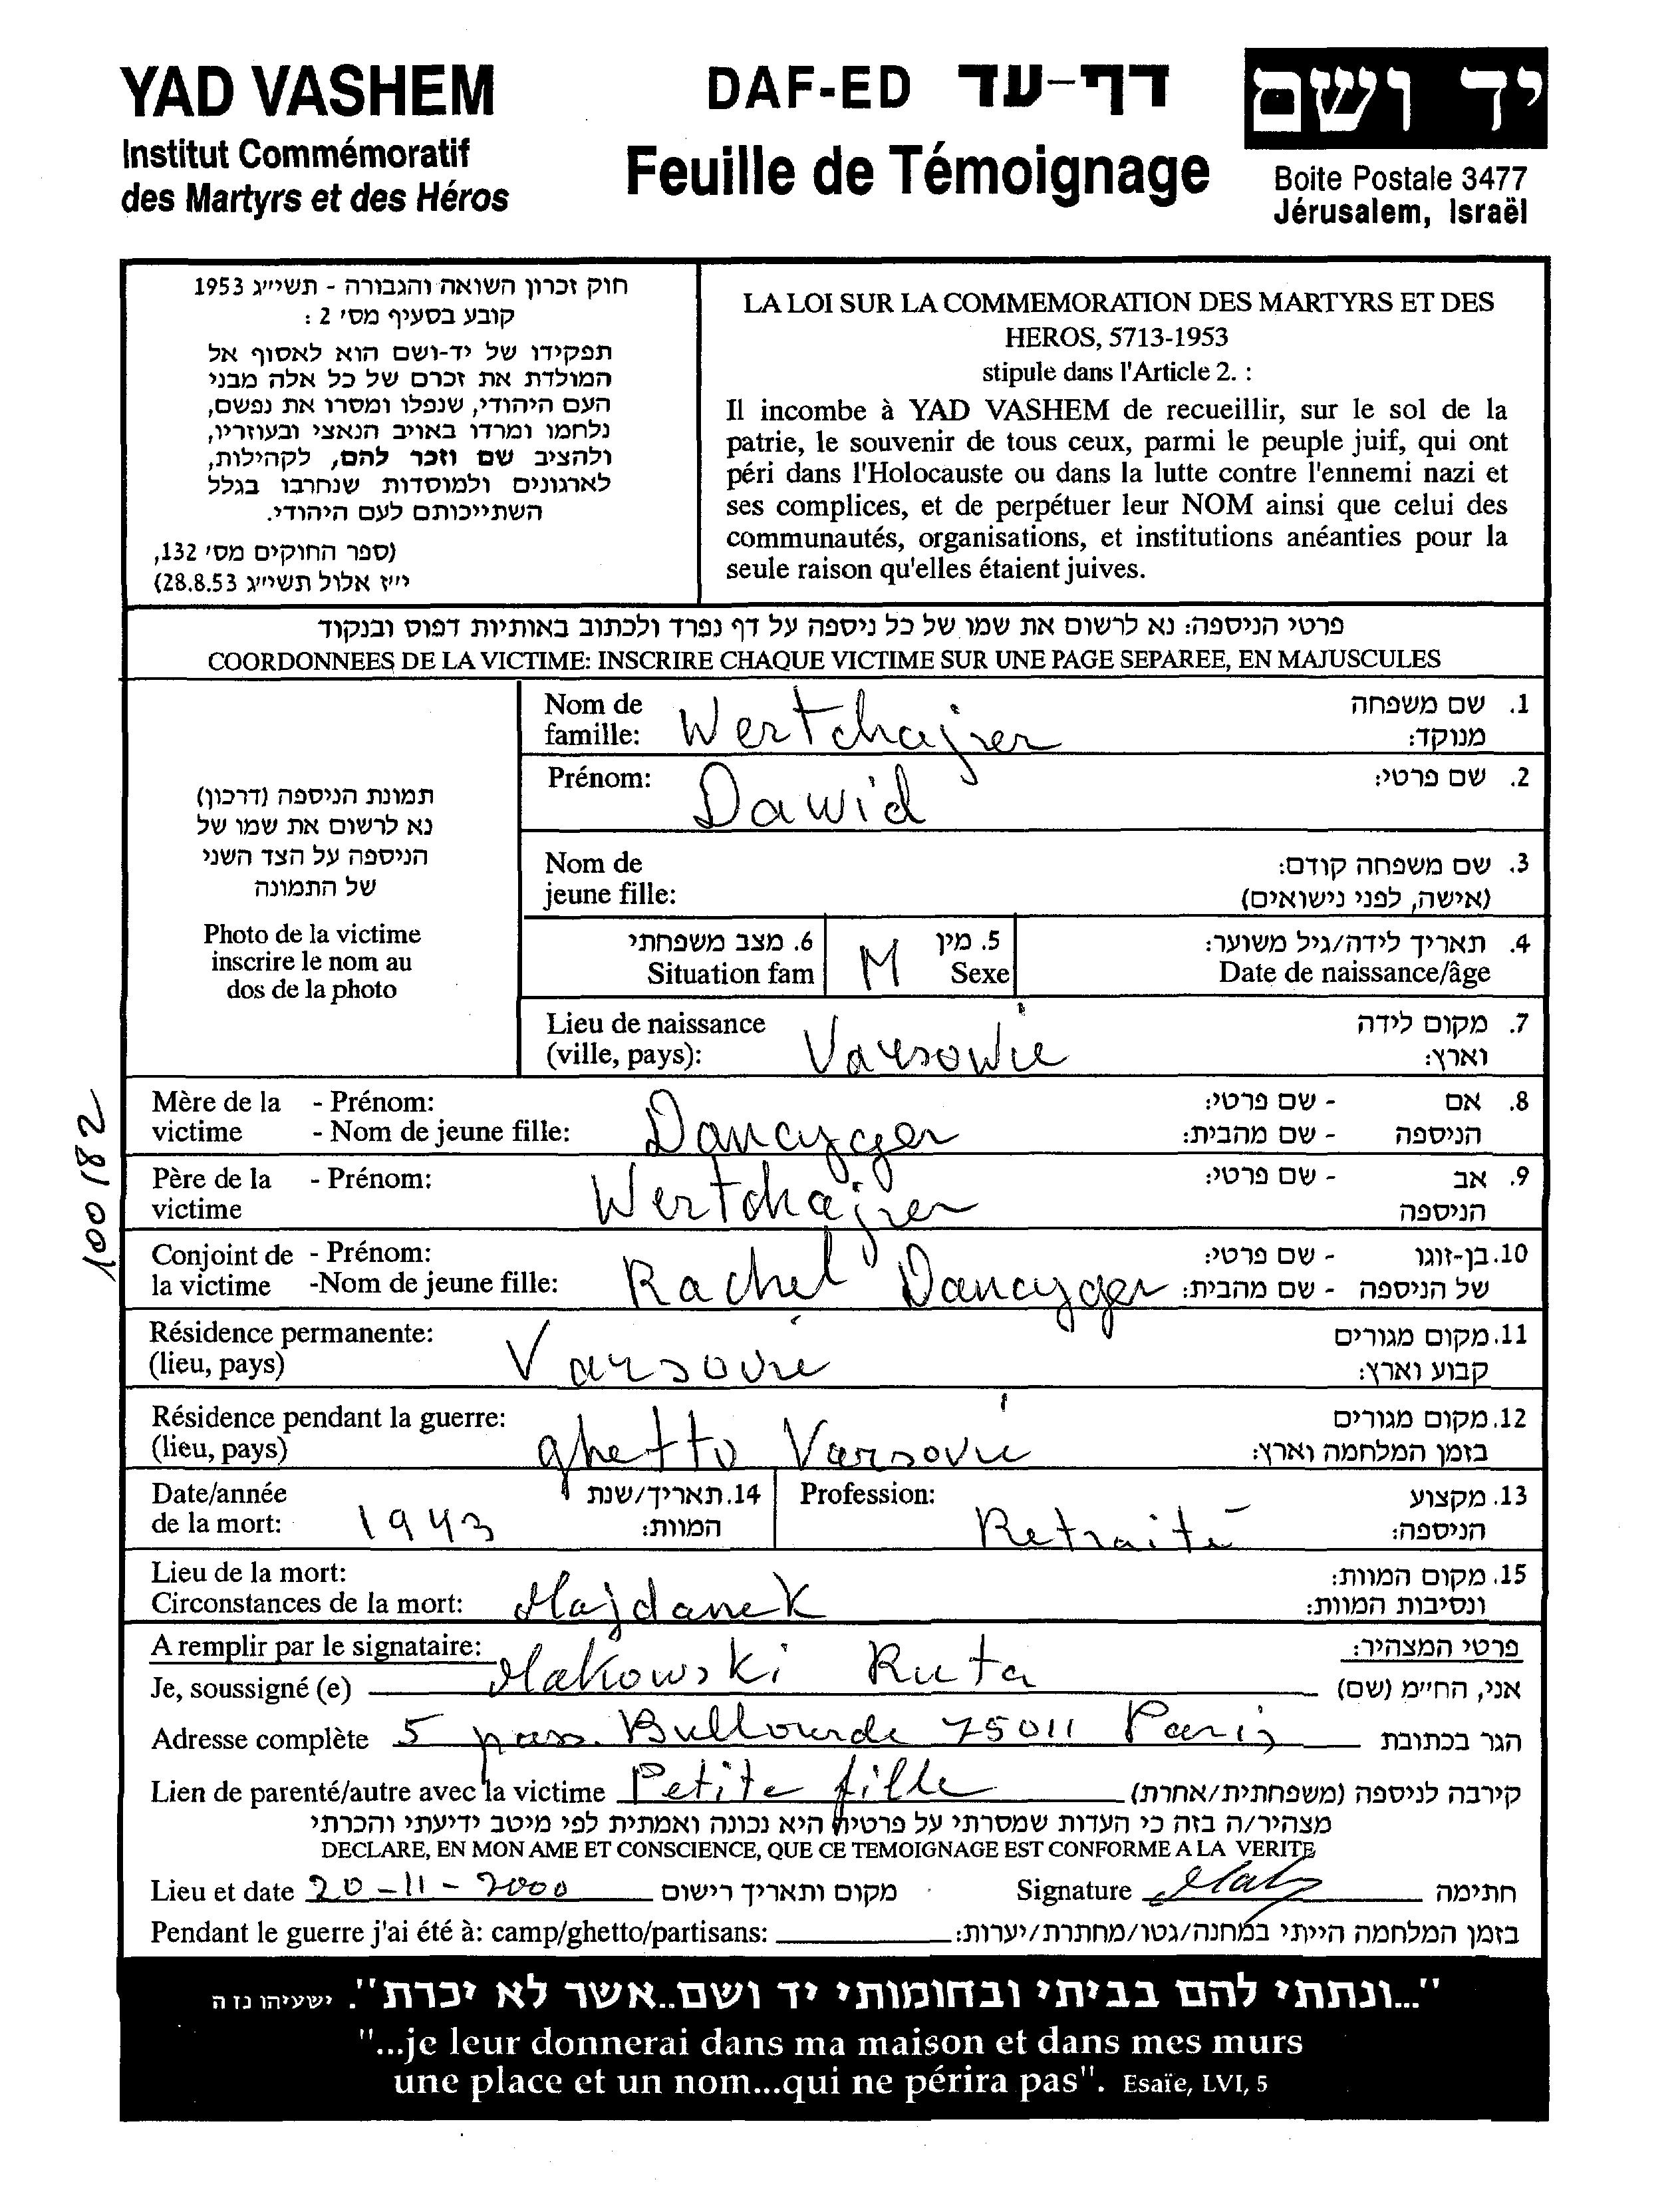 YAD VASHEM
Institut Commémoratif
des Martyrs et des Héros
DAF-ED דף-עד
Feuille de Témoignage
יד ושם
Boite Postale 3477
Jérusalem, Israël
חוק זכרון השואה והגבורה - תשי״ג 1953
קובע בסעיף מס׳ 2 :
תפקידו של יד-ושם הוא לאסוף אל
המולדת את זכרם של כל אלה מבני
העם היהודי, שנפלו ומסרו את נפשם,
נלחמו ומרדו באויב הנאצי ובעוזריו,
ולהציב שם וזכר להם, לקהילות,
לארגונים ולמוסדות שנחרבו בגלל
השתייכותם לעם היהודי.
(ספר החוקים מס׳ 132,
י״ז אלול תשי״ג 28.8.53)
LA LOI SUR LA COMMEMORATION DES MARTYRS ET DES
HEROS, 5713-1953
stipule dans l'Article 2. :
Il incombe à YAD VASHEM de recueillir, sur le sol de la
patrie, le souvenir de tous ceux, parmi le peuple juif, qui ont
péri dans l'Holocauste ou dans la lutte contre l'ennemi nazi et
ses complices, et de perpétuer leur NOM ainsi que celui des
communautés, organisations, et institutions anéanties pour la
seule raison qu'elles étaient juives.
פרטי הניספה: נא לרשום את שמו של כל ניספה על דף נפרד ולכתוב באותיות דפוס ובנקוד
COORDONNEES DE LA VICTIME: INSCRIRE CHAQUE VICTIME SUR UNE PAGE SEPAREE, EN MAJUSCULES
תמונת הניספה (דרכון)
נא לרשום את שמו של
הניספה על הצד השני
של התמונה
Photo de la victime
inscrire le nom au
dos de la photo
Nom de famille: Wertchajzer 1. שם משפחה
מנוקד:
Prénom: Dawid 2. שם פרטי:
Nom de 3. שם משפחה קודם:
jeune fille: (אישה, לפני נישואים)
6. מצב משפחתי M 5. מין 4. תאריך לידה/גיל משוער:
Situation fam Sexe Date de naissance/âge
Lieu de naissance 7. מקום לידה
(ville, pays): Varsowie וארץ:
Mère de la - Prénom: - שם פרטי: 8. אם
victime - Nom de jeune fille: Dancyger - שם מהבית: הניספה
Père de la - Prénom: Wertchajzer - שם פרטי: 9. אב
victime הניספה
Conjoint de - Prénom: - שם פרטי: 10. בן-זוגו
la victime -Nom de jeune fille: Rachel Dancyger - שם מהבית: של הניספה
Résidence permanente: 11. מקום מגורים
(lieu, pays) Varsovie קבוע וארץ:
Résidence pendant la guerre: 12. מקום מגורים
(lieu, pays) ghetto Varsovie בזמן המלחמה וארץ:
Date/année 14. תאריך/שנת Profession: 13. מקצוע
de la mort: 1943 המוות: Retraité הניספה:
Lieu de la mort: 15. מקום המוות:
Circonstances de la mort: Majdanek ונסיבות המוות:
A remplir par le signataire: פרטי המצהיר:
Je, soussigné (e) Makowski Ruta אני, החי״מ (שם)
Adresse complète 5 pass. Bullourde 75011 Paris הגר בכתובת
Lien de parenté/autre avec la victime Petite fille קירבה לניספה (משפחתית/אחרת)
מצהיר/ה בזה כי העדות שמסרתי על פרטיה היא נכונה ואמתית לפי מיטב ידיעתי והכרתי
DECLARE, EN MON AME ET CONSCIENCE, QUE CE TEMOIGNAGE EST CONFORME A LA VERITE
Lieu et date 20-11-2000 מקום ותאריך רישום Signature חתימה
Pendant le guerre j'ai été à: camp/ghetto/partisans: בזמן המלחמה הייתי במחנה/גטו/מחתרת/יערות:
100182
"...ונתתי להם בביתי ובחומותי יד ושם..אשר לא יכרת". ישעיהו נז ה
"...je leur donnerai dans ma maison et dans mes murs
une place et un nom...qui ne périra pas". Esaïe, LVI, 5